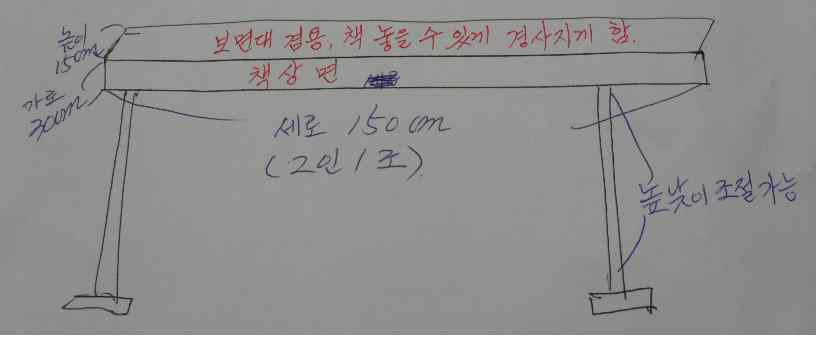 보면대 겸용, 책 놓을 수 있게 경사지게 함.
높이
150m
책상면
가로
300m
세로 150cm
(2인 1조)
높낮이 조절가능